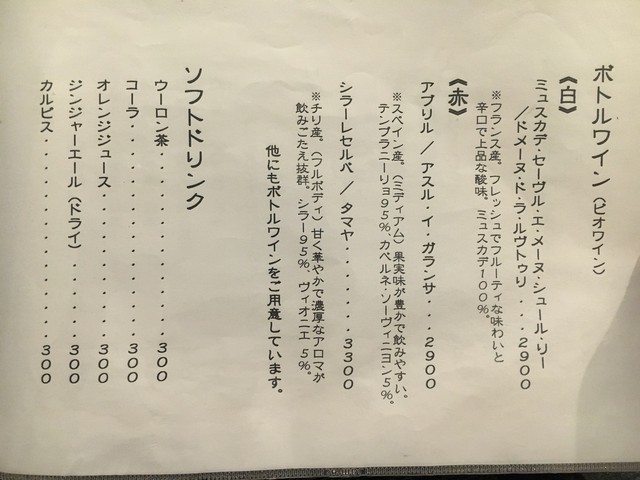 ボトルワイン（ビオワイン）
《白》
ミュスカデ・セーヴル・エ・メーヌ・シュール・リー
／ドメーヌ・ド・ラ・ルヴトゥリ...2900
※フランス産。フレッシュでフルーティな味わいと
辛口で上品な酸味。ミュスカデ100%。
《赤》
アブリル／アスル・イ・ガランサ...2900
※スペイン産。（ミディアム）果実味が豊かで飲みやすい。
テンプラニーリョ95%、カベルネ・ソーヴィニヨン5%。
シラーレセルバ／タマヤ......3300
※チリ産。（フルボディ）甘く華やかで濃厚なアロマが
飲みごたえ抜群。シラー95%、ヴィオニエ5%。
他にもボトルワインをご用意しています。
ソフトドリンク
ウーロン茶.............300
コーラ................300
オレンジジュース...........300
ジンジャーエール（ドライ）......300
カルピス...............300